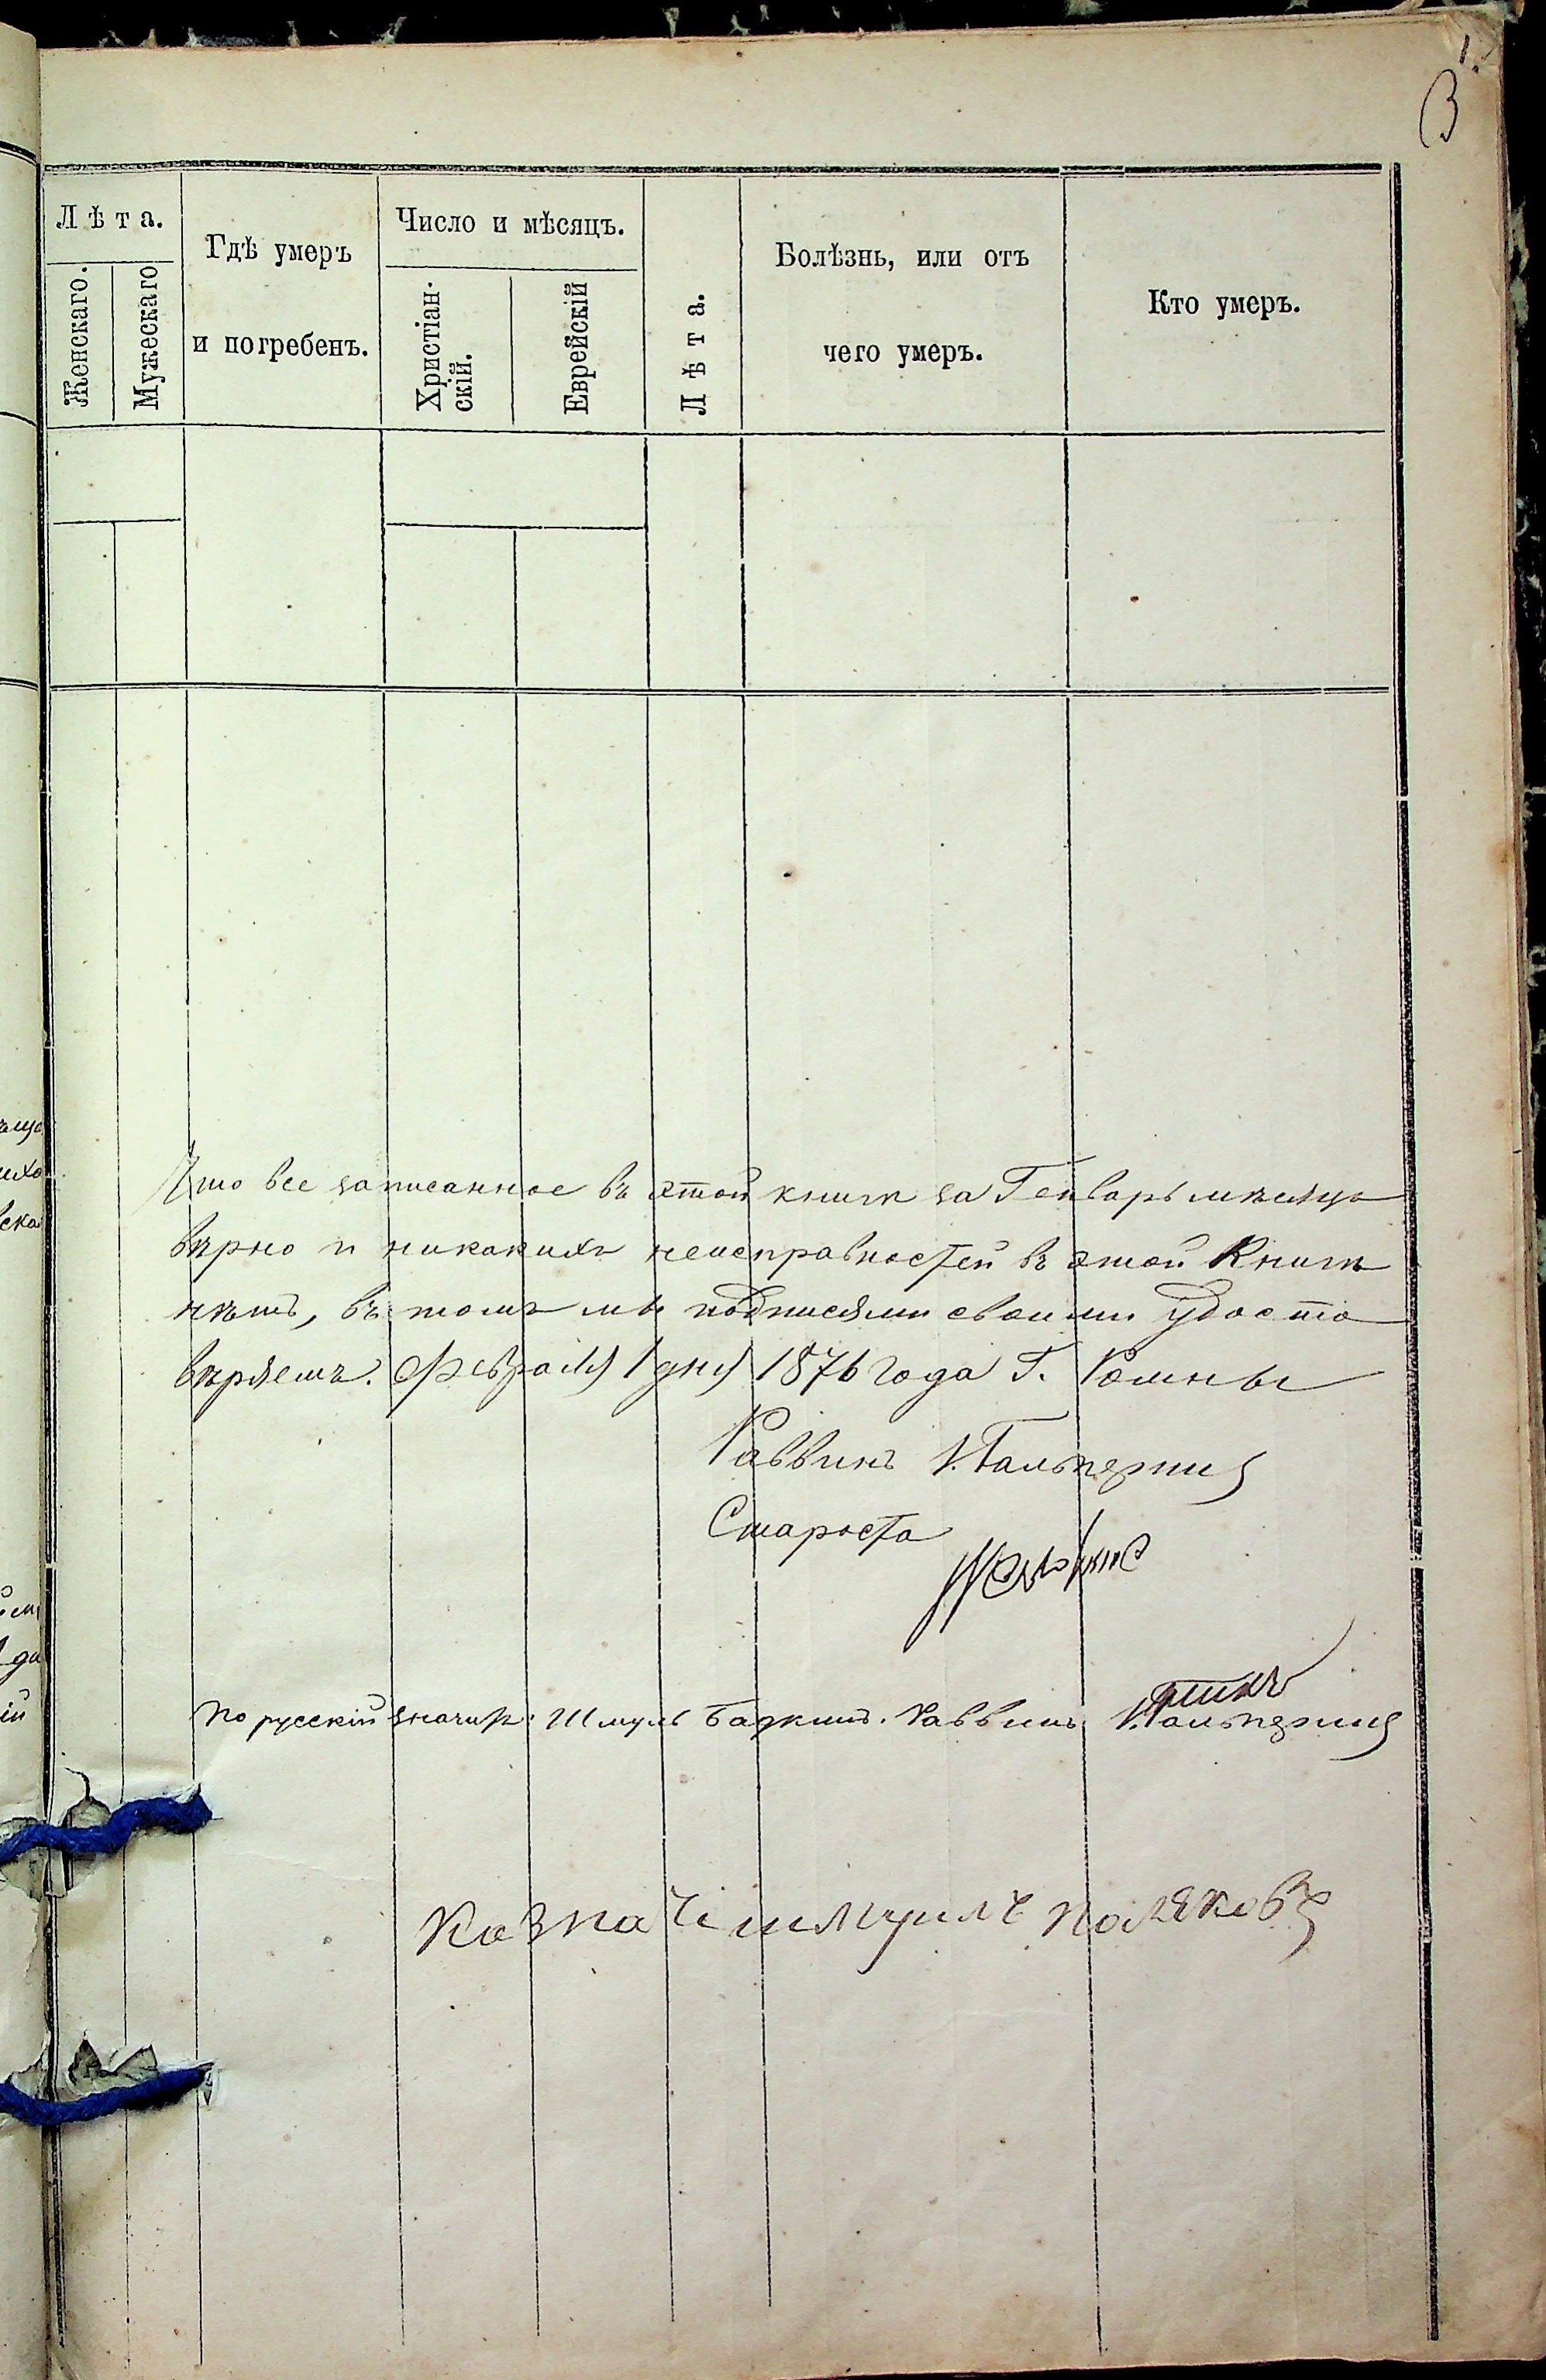 Лѣта.
Женскаго.
Мужескаго
Гдѣ умеръ
и погребенъ.
Число и мѣсяцъ.
Христіан-
скій.
Еврейскій
Лѣта.
Болѣзнь, или отъ
чего умеръ.
Кто умеръ.
Что все записанное въ этой книгѣ за Генварь мѣсяцъ
вѣрно и никакихъ неисправностей въ этой Книгѣ
нѣтъ, въ томъ мы подписями своими удосто
вѣряемъ. Февраля 1 дня 1876 года Г. Ромны
Раввинъ И. Гальперинъ
Староста
По русскій значитъ: Шмуль Раввинъ И. Гальперинъ
Казначі шмуиль поляковъ